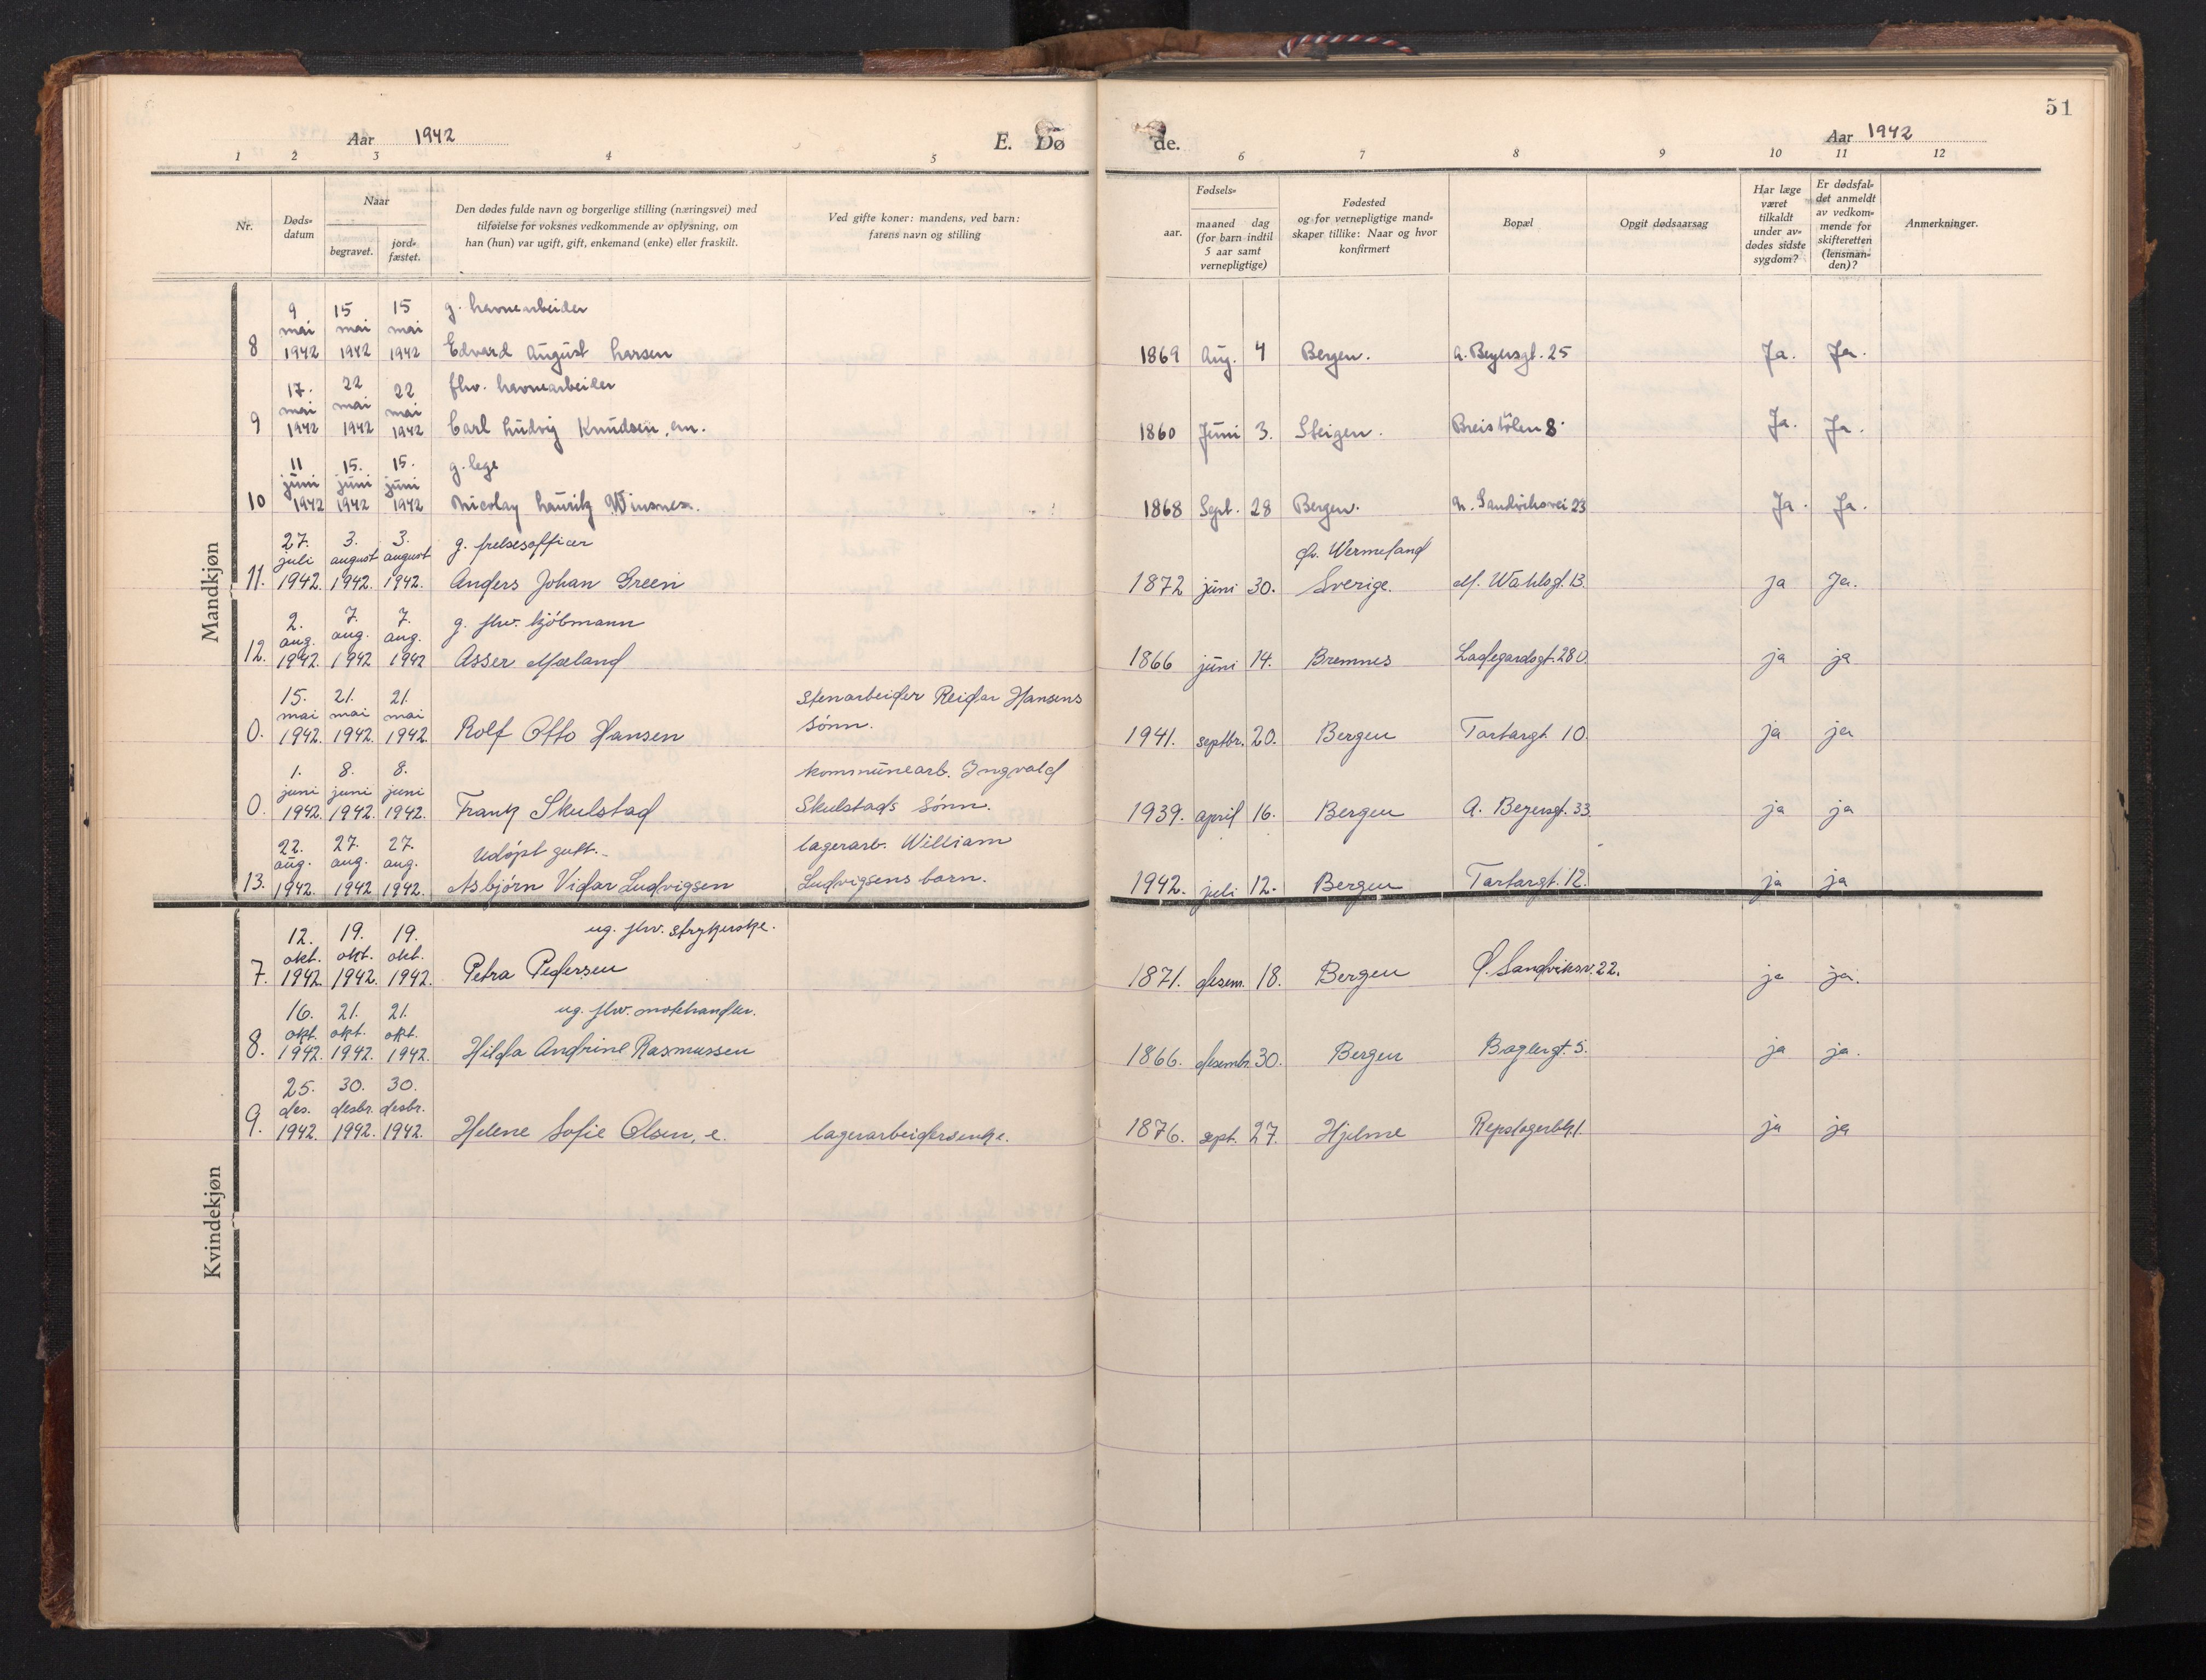 51
Aar 1942
E. Dø
de.
Aar 1942
1 2 3 4 5
6 7 8 9 10 11 12
Nr.
Døds-
datum
Naar
begravet.
jord-
fæstet.
Den dødes fulde navn og borgerlige stilling (næringsvei) med
tilføielse for voksnes vedkommende av oplysning, om
han (hun) var ugift, gift, enkemand (enke) eller fraskilt.
Ved gifte koner: mandens, ved barn:
farens navn og stilling
aar.
Fødsels-
maaned dag
(for barn indtil
5 aar samt
vernepligtige)
Fødested
og for vernepligtige mand-
skaper tillike: Naar og hvor
konfirmert
Bopæl
Opgit dødsaarsag
Har læge
været
tilkaldt
under av-
dødes sidste
sygdom?
Er dødsfal-
det anmeldt
av vedkom-
mende for
skifteretten
(lensman-
den)?
Anmerkninger.
Mandkjøn
9 15 15 g. havnearbeider
mai mai mai
8 1942 1942 1942 Edvard August Larsen 1869 Aug. 4 Bergen. A. Beyersgt. 25 Ja. Ja.
17. 22 22 fhv. havnearbeider
mai mai mai
9 1942 1942 1942 Carl Ludvig Knudsen, em. 1860 Juni 3. Steigen. Breistølen 8. Ja. Ja.
11 15. 15. g. lege
juni juni juni
10 1942 1942 1942 Nicolay Lauritz Winsnes. 1868 Sept. 28 Bergen. n. Sandviksvei 23 Ja. Ja.
27. 3. 3. g. frelsesofficer Ø. Wermeland
juli august august
11. 1942. 1942. 1942. Anders Johan Green 1872 juni 30. Sverige. M. Wahlsgt. 13. ja Ja.
2. 7. 7. g. fhv. kjøbmann
aug. aug. aug.
12. 1942. 1942 1942 Asser Mæland 1866 juni 14. Bremnes Ladegardsgt. 28 ja ja
15. 21. 21. Stenarbeider Reidar Hansens
mai mai mai sønn.
0. 1942. 1942. 1942. Rolf Otto Hansen 1941. septbr. 20. Bergen Tartargt. 10. ja ja
1. 8. 8. kommunearb. Ingvald
juni juni juni
0. 1942. 1942. 1942. Frank Skulstad Skulstads sønn. 1939. april 16. Bergen A. Beyersgt. 33. ja ja
22. 27. 27. Udøpt gutt. lagerarb. William
aug. aug. aug.
13. 1942. 1942 1942. Asbjørn Vidar Ludvigsen Ludvigsens barn. 1942. juli 12. Bergen Tartargt. 12. ja ja
Kvindekjøn
12. 19. 19. ug. fhv. strykerske.
okt. okt. okt.
7. 1942. 1942. 1942. Petra Pedersen 1871. desem. 18. Bergen Ø. Sandviksv. 22. ja ja.
16. 21. 21. ug. fhv. motehandler.
okt. okt. okt.
8. 1942. 1942. 1942. Hilda Andrine Rasmussen 1866. desembr. 30. Bergen Baglergt. 5. ja ja.
25. 30. 30.
des. desbr. desbr.
9. 1942. 1942. 1942. Helene Sofie Olsen, e. lagerarbeidersenke. 1876. sept. 27. Hjelme Repslagerbk. 1. ja ja